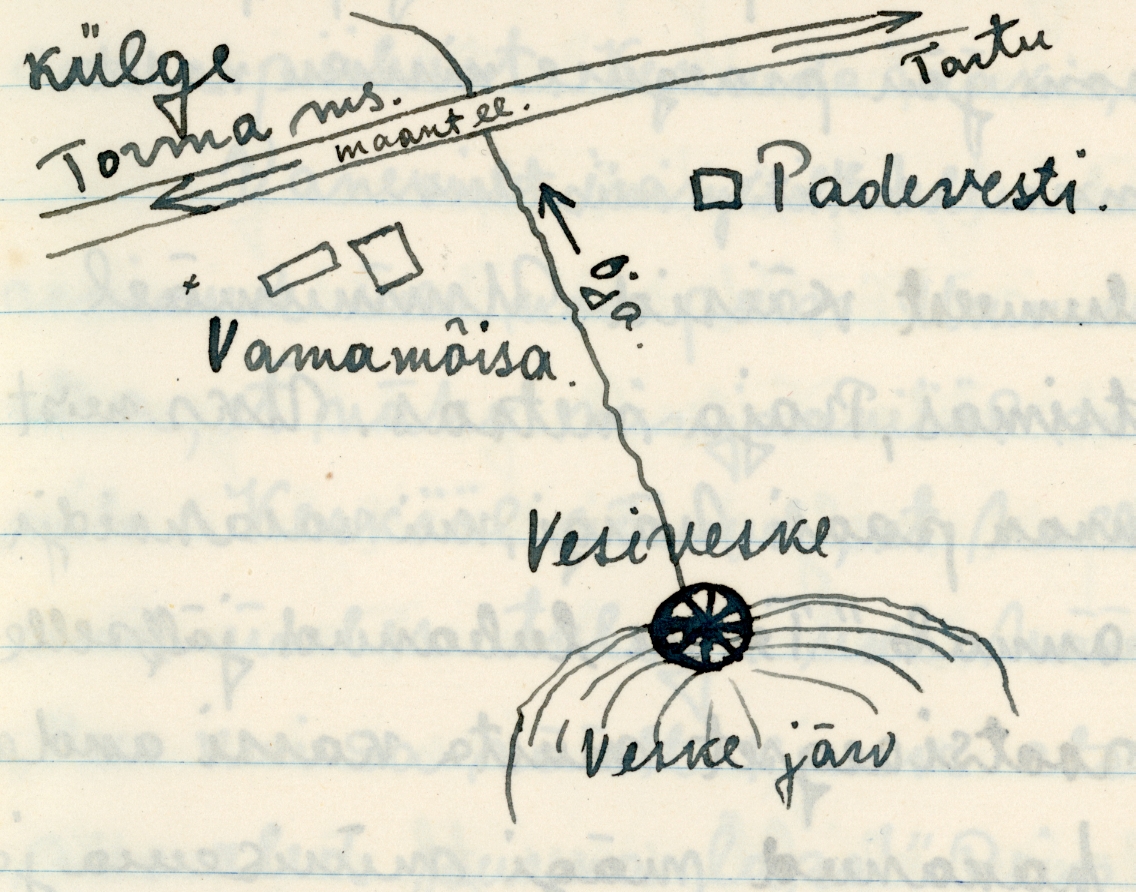 külge
Tartu
Torma ms.
maantee.
Padevesti.
oja.
Vanamõisa.
Vesiveske
Veske järv